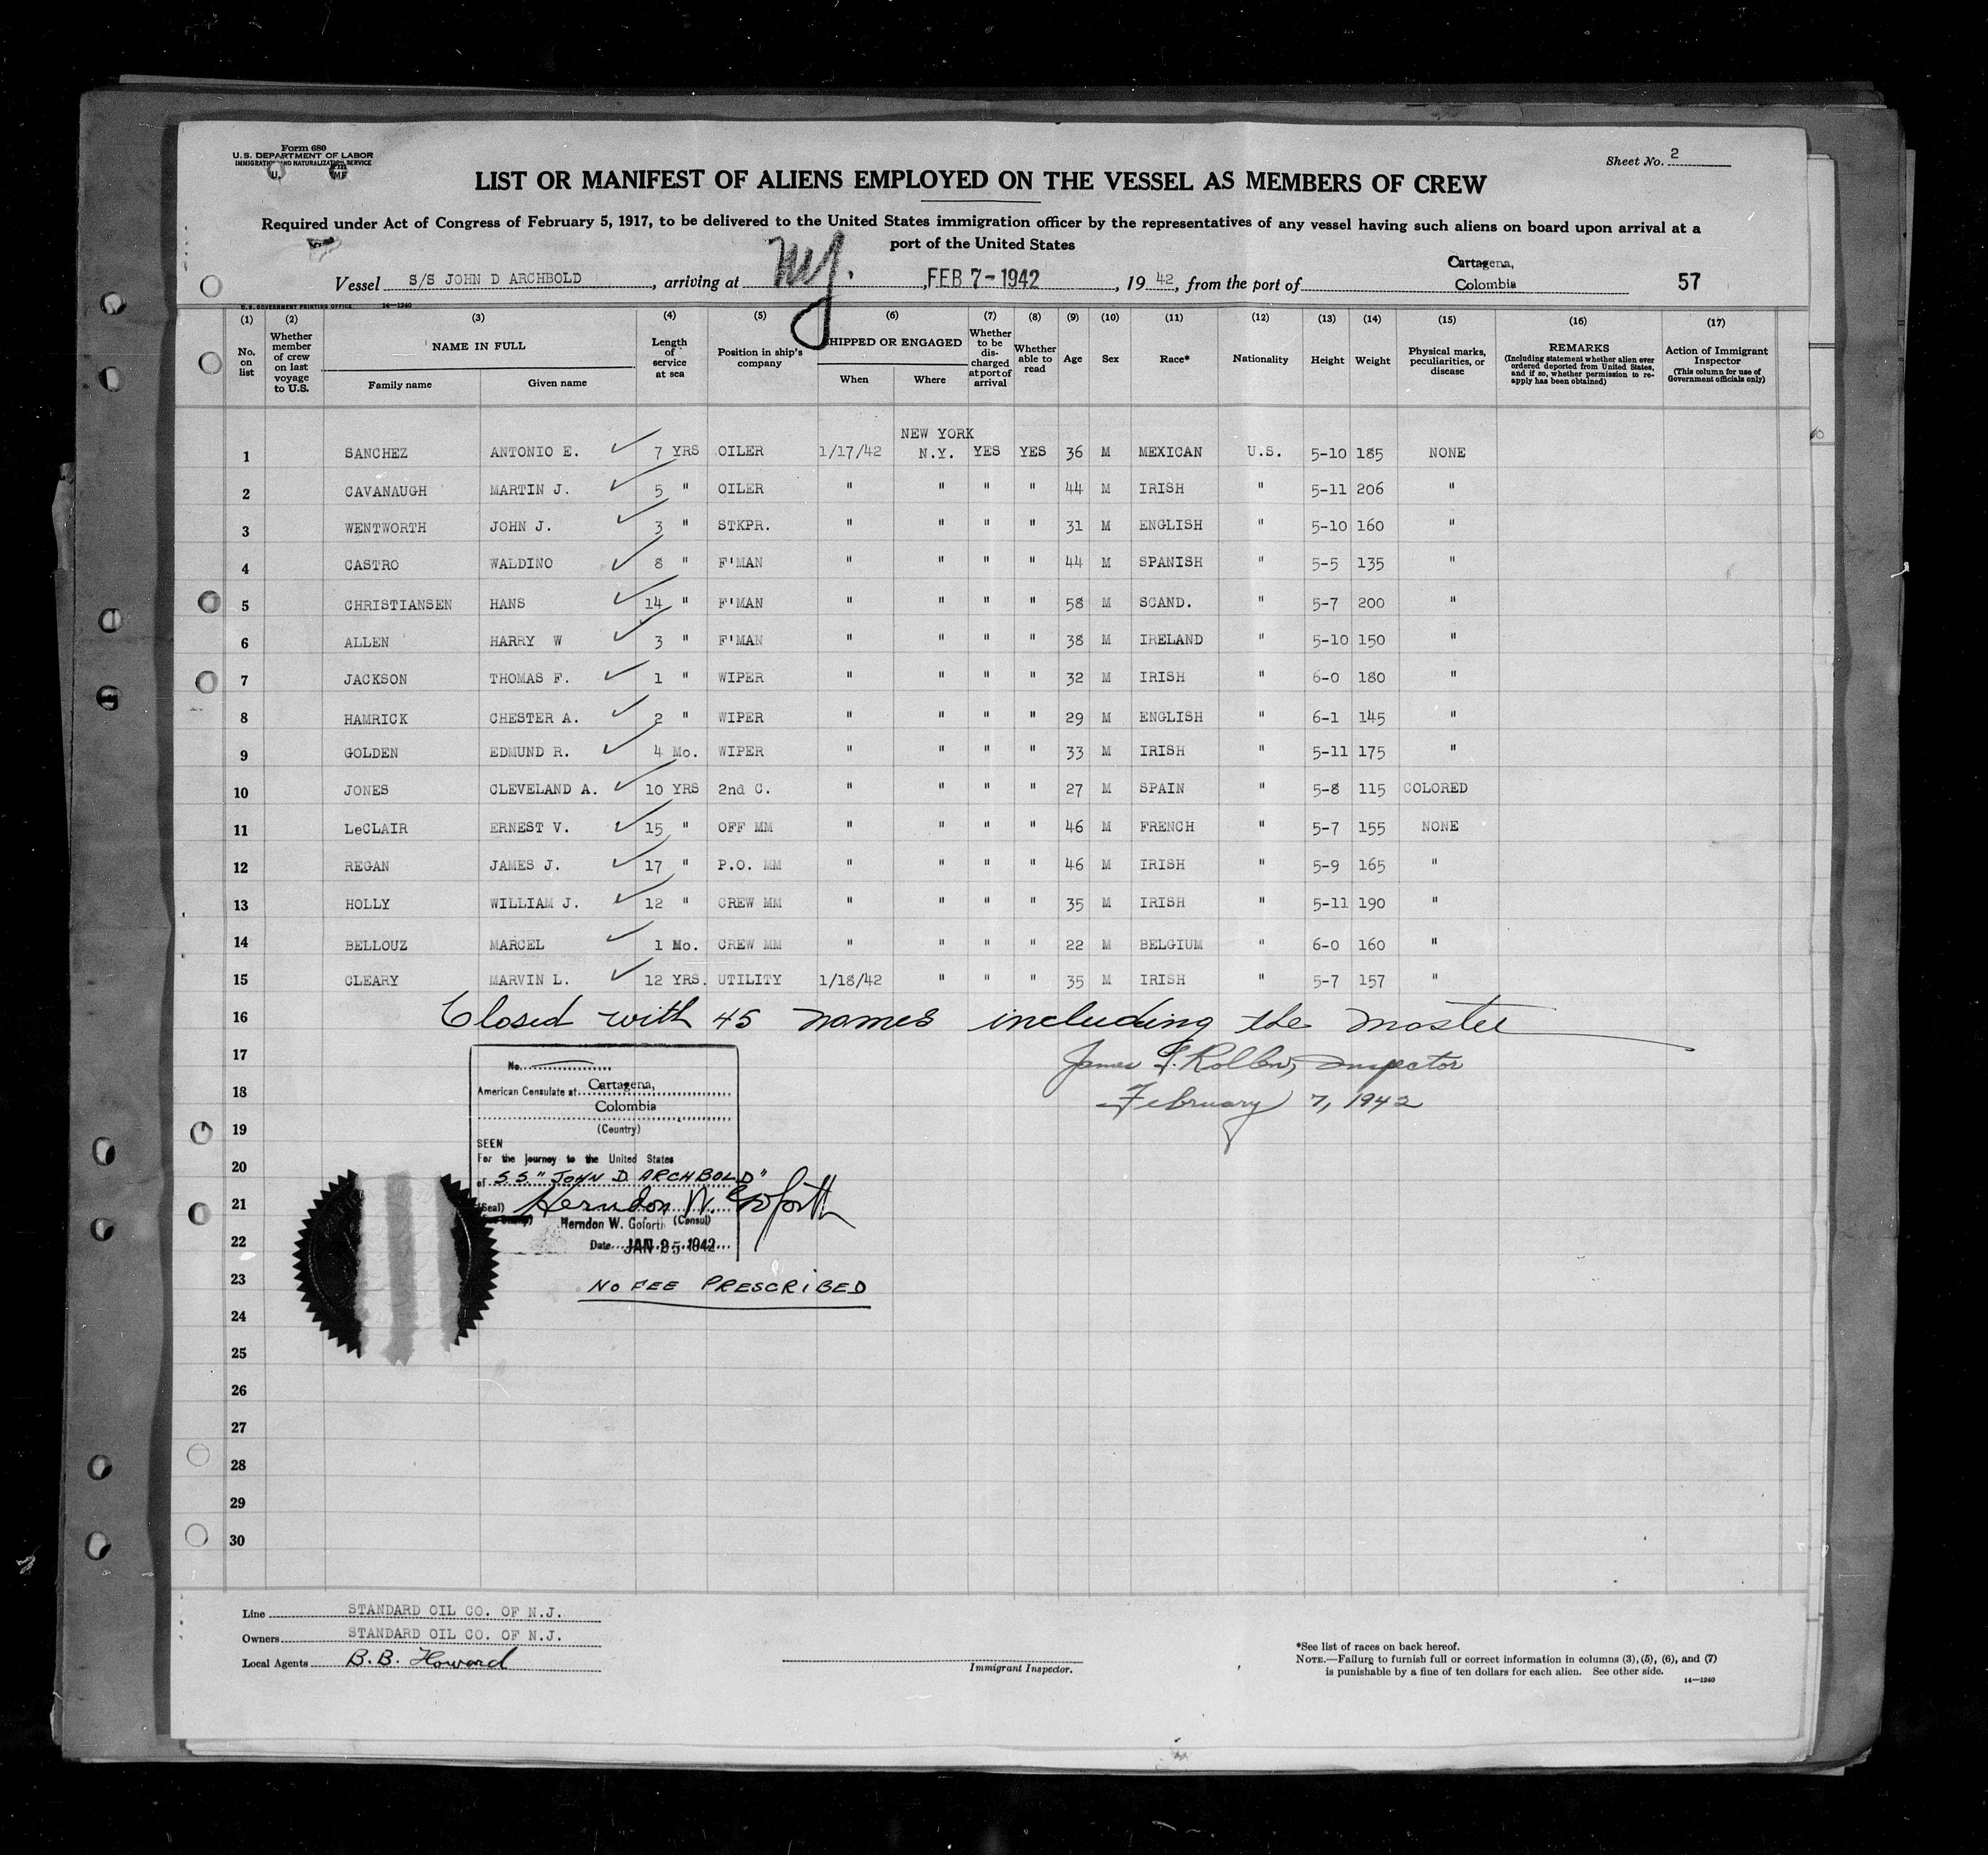 Form 680
U. S. DEPARTMENT OF LABOR
IMMIGRATION AND NATURALIZATION SERVICE
Sheet No. 2
LIST OR MANIFEST OF ALIENS EMPLOYED ON THE VESSEL AS MEMBERS OF CREW
Required under Act of Congress of February 5, 1917, to be delivered to the United States immigration officer by the representatives of any vessel having such aliens on board upon arrival at a
port of the United States
Vessel S/S JOHN D ARCHBOLD, arriving at NY. FEB 7-1942, 19 42, from the port of Cartagena, Colombia 57
U. S. GOVERNMENT PRINTING OFFICE 14—1240
(1) (2) (3) (4) (5) (6) (7) (8) (9) (10) (11) (12) (13) (14) (15) (16) (17)
No. on list
Whether member of crew on last voyage to U.S.
NAME IN FULL
Family name Given name
Length of service at sea
Position in ship's company
SHIPPED OR ENGAGED
When Where
Whether to be discharged at port of arrival
Whether able to read
Age Sex Race* Nationality Height Weight
Physical marks, peculiarities, or disease
REMARKS
(Including statement whether alien ever ordered deported from United States, and if so, whether permission to re-apply has been obtained)
Action of Immigrant Inspector
(This column for use of Government officials only)
1 SANCHEZ ANTONIO E. 7 YRS OILER 1/17/42 NEW YORK N.Y. YES YES 36 M MEXICAN U.S. 5-10 185 NONE
2 CAVANAUGH MARTIN J. 5 " OILER " " " " 44 M IRISH " 5-11 206 "
3 WENTWORTH JOHN J. 3 " STKPR. " " " " 31 M ENGLISH " 5-10 160 "
4 CASTRO WALDINO 8 " F'MAN " " " " 44 M SPANISH " 5-5 135 "
5 CHRISTIANSEN HANS 14 " F'MAN " " " " 58 M SCAND. " 5-7 200 "
6 ALLEN HARRY W 3 " F'MAN " " " " 38 M IRELAND " 5-10 150 "
7 JACKSON THOMAS F. 1 " WIPER " " " " 32 M IRISH " 6-0 180 "
8 HAMRICK CHESTER A. 2 " WIPER " " " " 29 M ENGLISH " 6-1 145 "
9 GOLDEN EDMUND R. 4 Mo. WIPER " " " " 33 M IRISH " 5-11 175 "
10 JONES CLEVELAND A. 10 YRS 2nd C. " " " " 27 M SPAIN " 5-8 115 COLORED
11 LeCLAIR ERNEST V. 15 " OFF MM " " " " 46 M FRENCH " 5-7 155 NONE
12 REGAN JAMES J. 17 " P.O. MM " " " " 46 M IRISH " 5-9 165 "
13 HOLLY WILLIAM J. 12 " CREW MM " " " " 35 M IRISH " 5-11 190 "
14 BELLOUZ MARCEL 1 Mo. CREW MM " " " " 22 M BELGIUM " 6-0 160 "
15 CLEARY MARVIN L. 12 YRS. UTILITY 1/18/42 " " " 35 M IRISH 5-7 157 "
16 Closed with 45 names including the master
17 James Inspector
18 February 7, 1942
19
20
21
22
23
24
25
26
27
28
29
30
No.
American Consulate at Cartagena,
Colombia
(Country)
SEEN
For the journey to the United States
of S.S. "JOHN D. ARCHBOLD"
(Seal) Herndon W. Goforth
Herndon W. Goforth (Consul)
Date JAN 25 1942
NO FEE PRESCRIBED
Line STANDARD OIL CO. OF N.J.
Owners STANDARD OIL CO. OF N.J.
Local Agents B.B. Howard
Immigrant Inspector.
*See list of races on back hereof.
NOTE.—Failurg to furnish full or correct information in columns (3), (5), (6), and (7)
is punishable by a fine of ten dollars for each alien. See other side.
14—1240